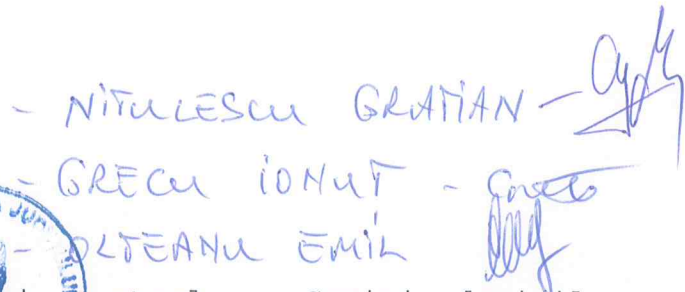 - NiTULESCU GRATiAN -
- GRECU iONUT -
- OLTEANU EMiL